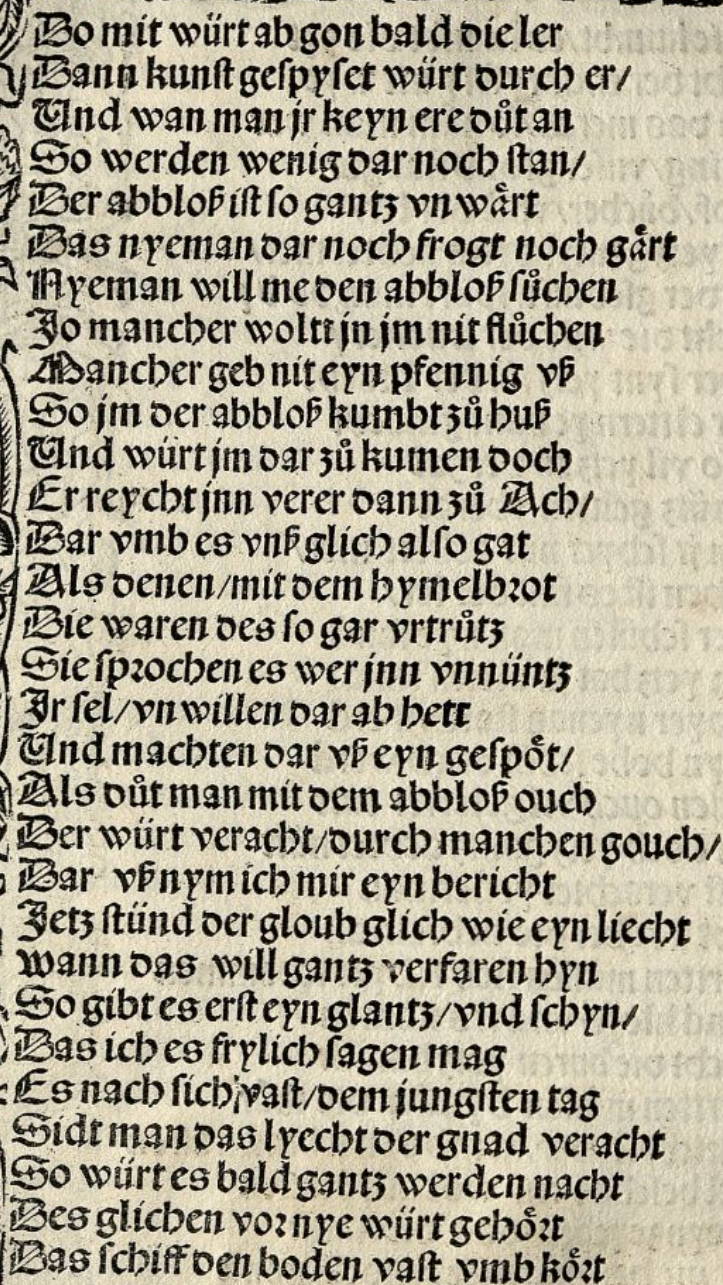 Do mit würt ab gon bald die ler
Dann kunst gespyset würt durch er/
Und wan man jr keyn ere důt an
So werden wenig dar noch stan/
Der abbloß ist so gantz vnwaͤrt
Das nyeman dar noch frogt noch gaͤrt
Nyeman will me den abbloß sůchen
Jo mancher woltt jn jm nit flůchen
Mancher geb nit eyn pfennig vß
So jm der abbloß kumbt zů huß
Und würt jm dar zů kumen doch
Er reycht jnn verer dann zů Ach/
Dar vmb es vnß glich also gat
Als denen/mit dem hymelbrot
Die waren des so gar vrtrůtz
Sie sprochen es wer jnn vnnüntz
Ir sel/vnwillen dar ab hett
Und machten dar vß eyn gespoͤt/
Als důt man mit dem abbloß ouch
Der würt veracht/durch manchen gouch/
Dar vß nym ich mir eyn bericht
Jetz stünd der gloub glich wie eyn liecht
Wann das will gantz verfaren hyn
So gibt es erst eyn glantz/vnd schyn/
Das ich es frylich sagen mag
Es nach sich vast/dem jungsten tag
Sidt man das lyecht der gnad veracht
So würt es bald gantz werden nacht
Des glichen vor nye würt gehoͤrt
Das schiff den boden vast vmb koͤrt